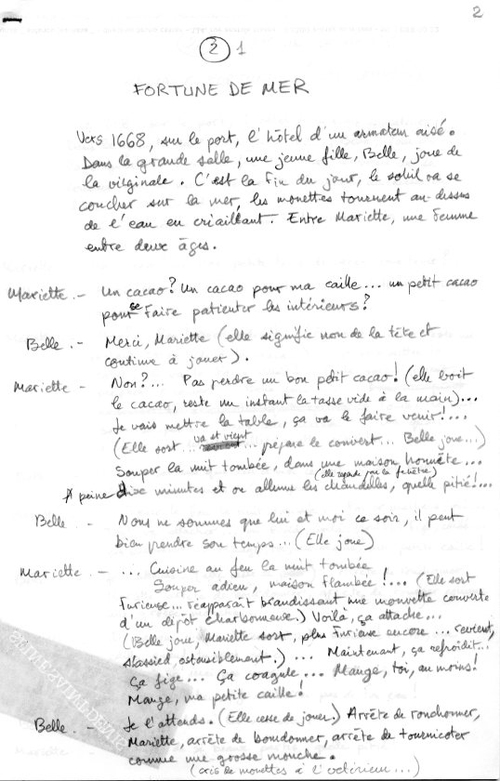 2
2 1
FORTUNE DE MER
Vers 1668, sur le port, l'hôtel d'un armateur aisé.
Dans la grande salle, une jeune fille, Belle, joue de
la virginale. C'est la fin du jour, le soleil va se
coucher sur la mer, les mouettes tournent au-dessus
de l'eau en criaillant. Entre Mariette, une femme
entre deux âges.
Mariette.- Un cacao? Un cacao pour ma caille... un petit cacao
pour se faire patienter les intérieurs?
Belle.- Merci, Mariette (elle signifie non de la tête et
continue à jouer).
Mariette - Non?... Pas perdre un bon petit cacao! (elle boit
le cacao, reste un instant la tasse vide à la main)...
Je vais mettre la table, ça va le faire venir!...
(Elle sort... va et vient... prépare le couvert... Belle joue...)
Souper la nuit tombée, dans une maison honnête...
(elle regarde par la fenêtre)
A peine dix minutes et on allume les chandelles, quelle pitié!...
Belle - Nous ne sommes que lui et moi ce soir, il peut
bien prendre son temps... (Elle joue)
Mariette - ... Cuisine au feu la nuit tombée
Souper adieu, maison flambée!... (Elle sort
furieuse... réapparaît brandissant une mouvette couverte
d'un dépôt charbonneux.) Voilà, ça attache...
(Belle joue, Mariette sort, plus furieuse encore... revient,
s'assied, ostensiblement.)... Maintenant, ça refroidit...
Ça fige... Ça coagule... Mange, toi, au moins!
Mange, ma petite caille!
Belle - Je l'attends. (Elle cesse de jouer.) Arrête de ronchonner,
Mariette, arrête de bourdonner, arrête de tournicoter
comme une grosse mouche.
(cris de mouettes à l'extérieur...)